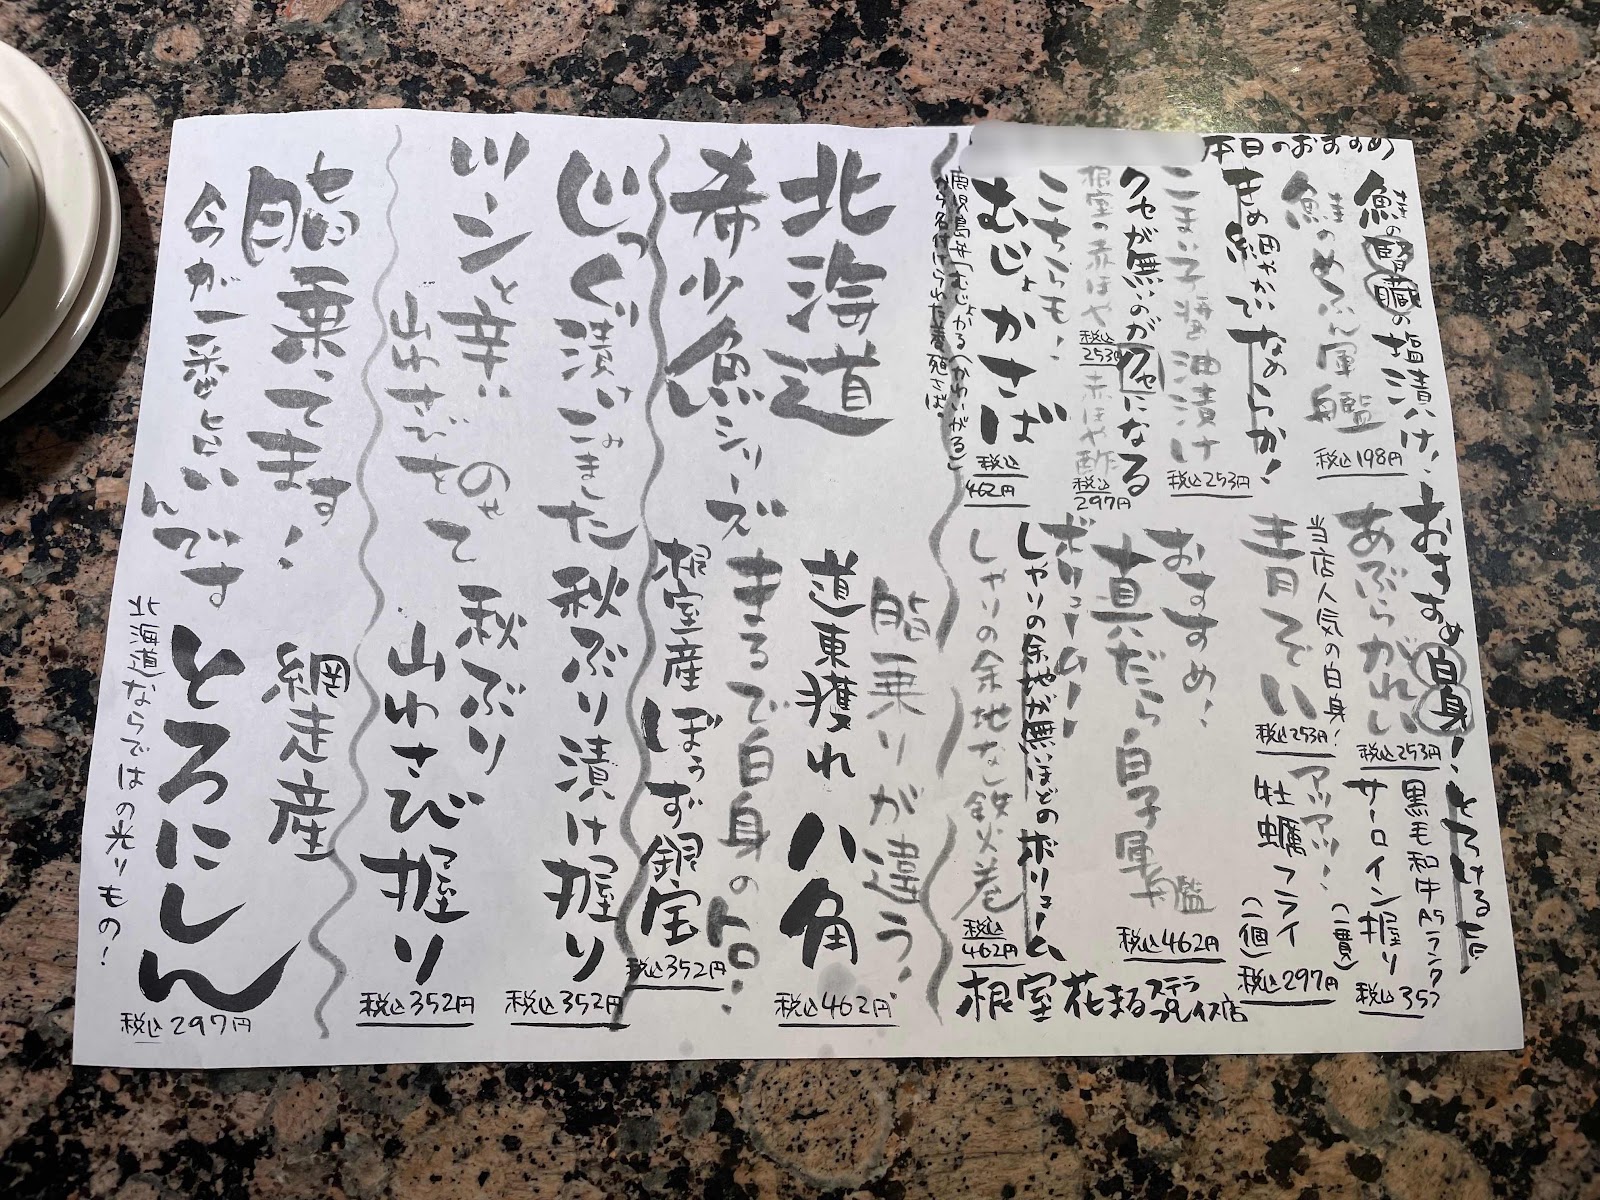 本日のおすすめ
鮭の腎臓の塩漬け!
鮭のめふん軍艦
税込198円
きめ細かい!なめらか!
こまい子醤油漬け
税込253円
クセが無いのがクセになる
根室の赤ほや
税込253円
赤ほや酢
税込297円
こちらも!
むじょかさば
税込462円
鹿児島弁「むじょかる(かわいがる)
から名付けられた養殖さば
おすすめ白身!とろけるぜ!
あぶらがれい
税込253円
当店人気の白身!
青ぞい
税込253円
おすすめ!
真だら白子軍艦
税込462円
ボリューム!
しゃりの余地が無いほどのボリューム
しゃりの余地なし鉄火巻
税込462円
黒毛和牛A5ランク
サーロイン握り
(一貫)
税込352
アツアツ!
牡蠣フライ
(一個)
税込297円
根室花まるステラプレイス店
北海道
希少魚シリーズ
脂乗りが違う!
道東獲れ 八角
税込462円
まるで白身のトロ!
根室産 ぼうず銀宝
税込352円
じっくり漬けこみました
秋ぶり漬け握り
税込352円
ツーンと辛い
山わさびをのせて
秋ぶり
山わさび握り
税込352円
脂乗ってます!
今が一番旨いんです
網走産
とろにしん
税込297円
北海道ならではの光りもの!